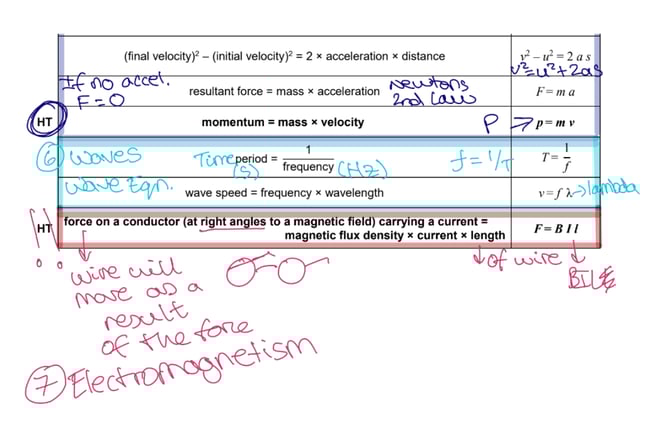 (final velocity)² – (initial velocity)² = 2 × acceleration × distance
v² – u² = 2 a s
v²=u²+2as
If no accel.
F=0
resultant force = mass × acceleration
Newtons
2nd Law
F = m a
HT
momentum = mass × velocity
P → p = m v
⑥ Waves
Time period = 1 / frequency (Hz)
(s)
f = 1/T
T = 1/f
Wave Eqn.
wave speed = frequency × wavelength
v = f λ → lambda
HT
force on a conductor (at right angles to a magnetic field) carrying a current =
magnetic flux density × current × length
F = B I l
!!
↓ of wire ↓
wire will
move as a
result
of the force
⑦ Electromagnetism